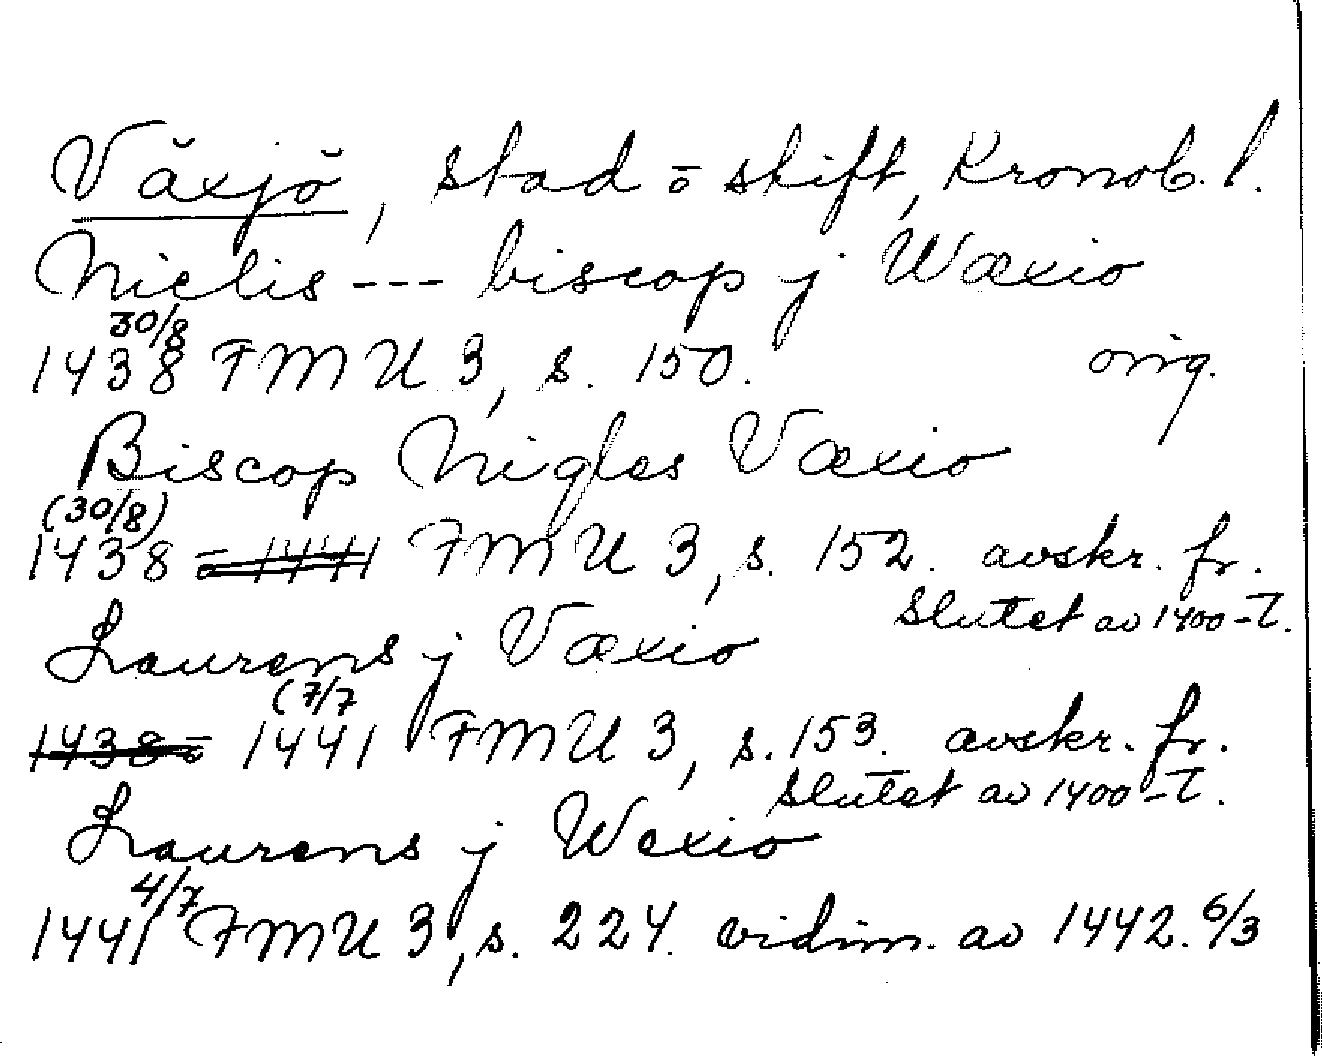 Växjö, stad o skift, Kronob. l.
Niclis --- biscop j Wæxio
30/8
1438 FMU 3, s. 150. orig.
Biscop Nigles Væxio
(30/8)
1438 o 1441 FMU 3, s. 152. avskr. fr.
slutet av 1400-t.
Laurens j Væxio
(7/7
1438 o 1441 FMU 3, s. 153. avskr. fr.
slutet av 1400-t.
Laurens j Wexio
4/7
1441 FMU 3, s. 224. vidim. av 1442. 6/3